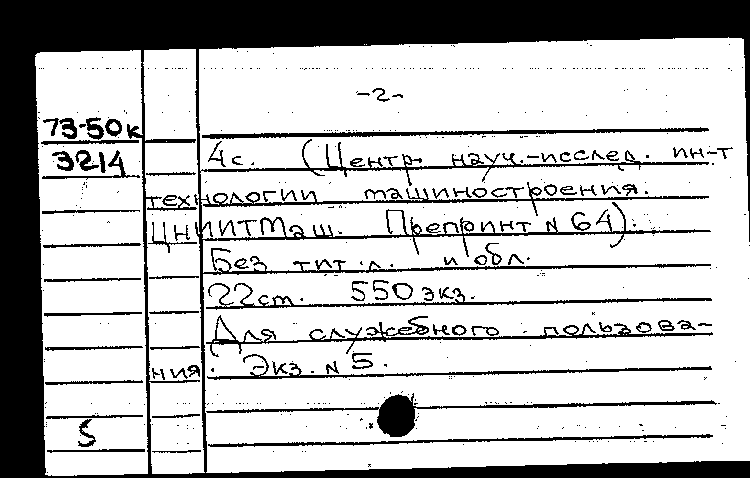 -2-
73-50к
3214
4с. (Центр. науч.-исслед. ин-т
технологии машиностроения.
ЦНИИТМаш. Препринт N 64).
Без тит.л. и обл.
22 см. 550 экз.
Для служебного пользова-
ния. Экз. N 5.
5